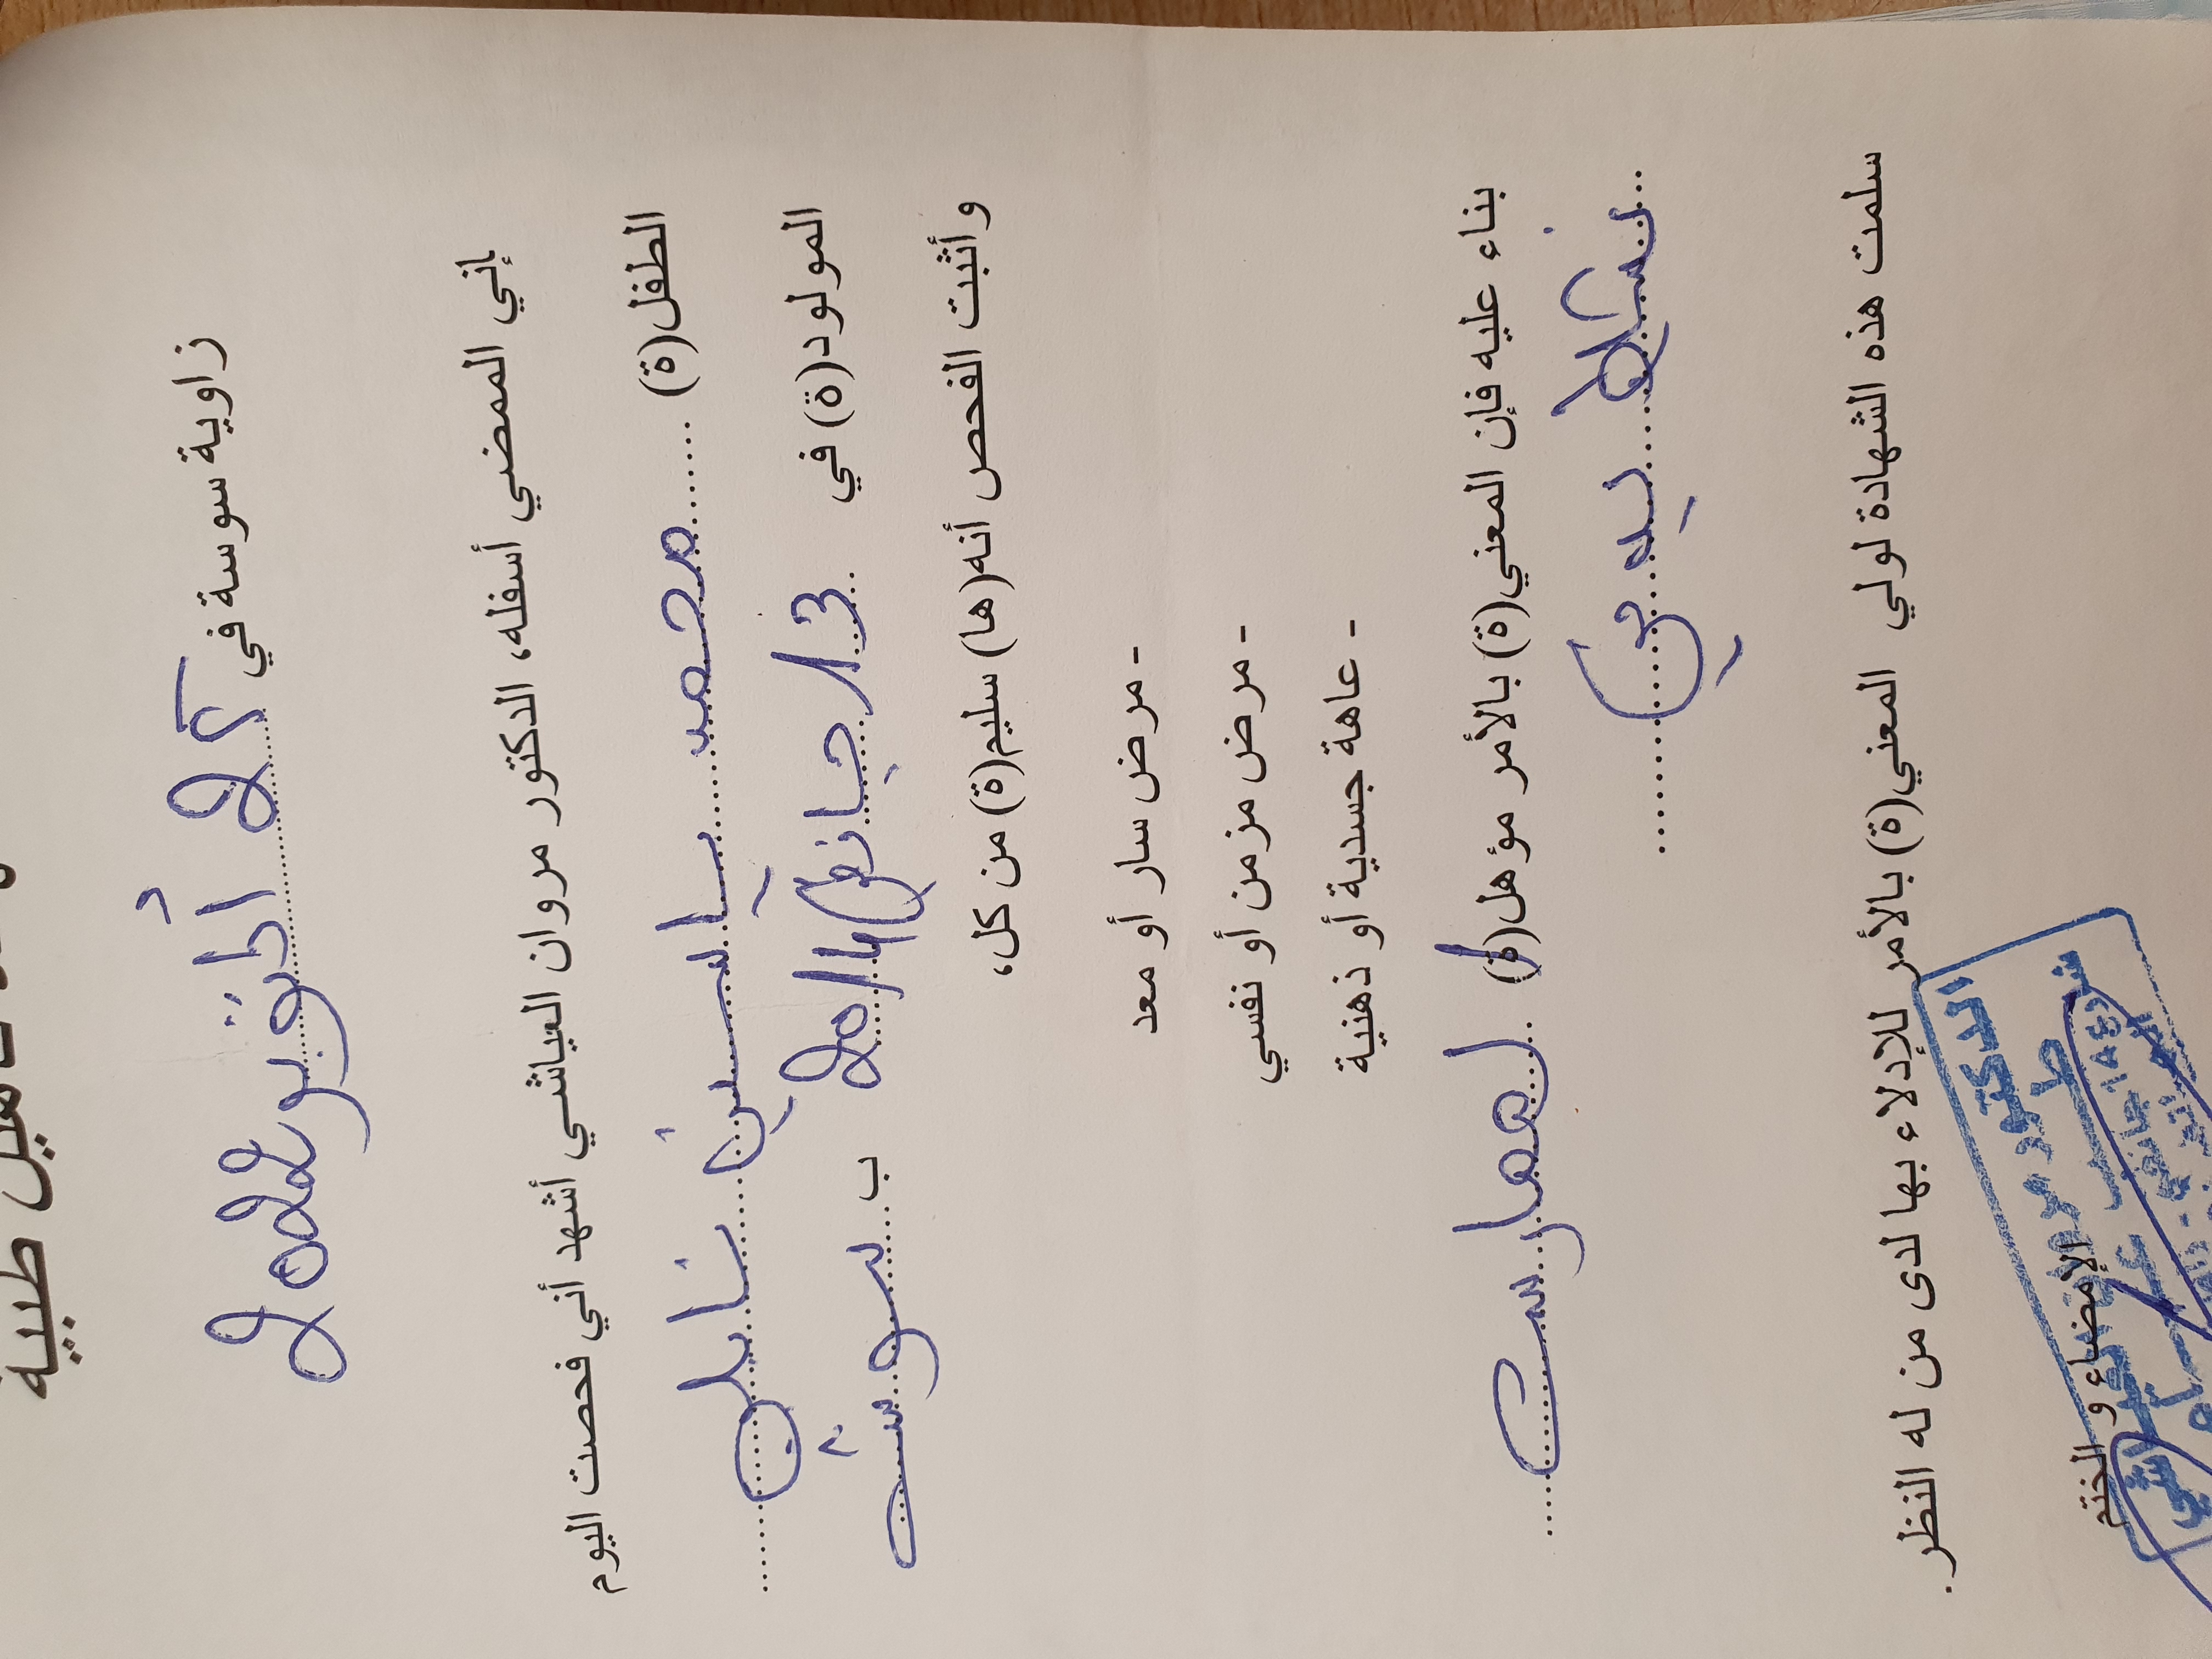 طبية
زاوية سوسة في 25 أكتوبر 2022
إني الممضي أسفله، الدكتور مروان العياشي أشهد أني فحصت اليوم
الطفل(ة) محمد ياسين نايلي
المولود(ة) في 13 جانفي 2014 ب سوسة
وأثبت الفحص أنه(ها) سليم(ة) من كل،
- مرض سار أو معد
- مرض مزمن أو نفسي
- عاهة جسدية أو ذهنية
بناء عليه فإن المعني(ة) بالأمر مؤهل(ة) لممارسة
سلمت هذه الشهادة لولي المعني(ة) بالأمر للإدلاء بها لدى من له النظر.
الإمضاء و الختم
الدكتور مروان العياشي